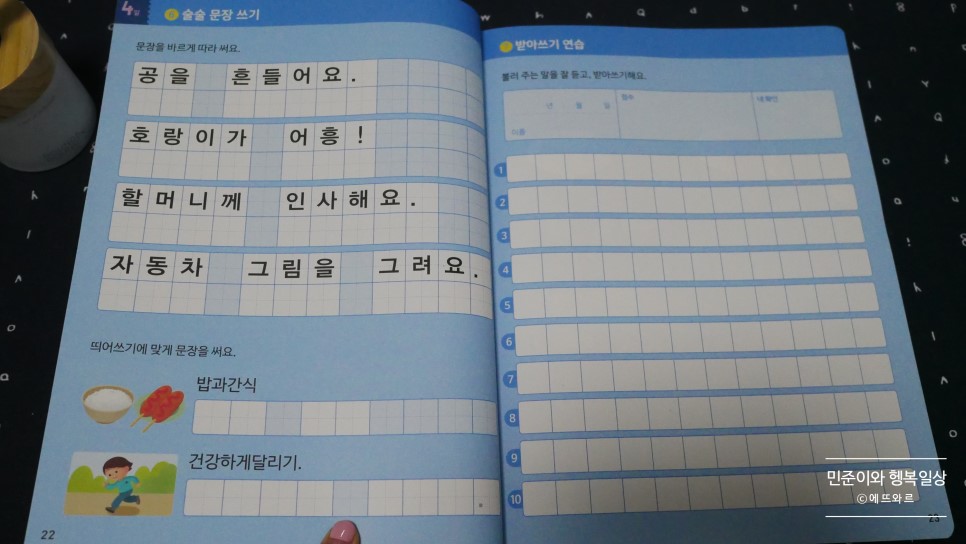 4일
술술 문장 쓰기
문장을 바르게 따라 써요.
공을 흔들어요.
호랑이가 어흥!
할머니께 인사해요.
자동차 그림을 그려요.
띄어쓰기에 맞게 문장을 써요.
밥과간식
건강하게달리기.
22
받아쓰기 연습
불러 주는 말을 잘 듣고, 받아쓰기해요.
년 월 일
점수
이름
1
2
3
4
5
6
7
8
9
10
민준이와 행복일상
©에뜨와르
23